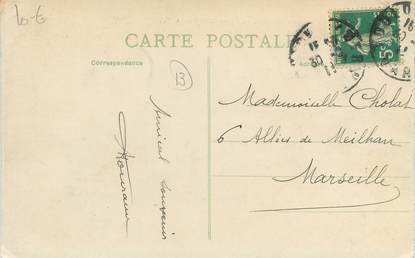 CARTE POSTALE
Correspondance
13
Amical souvenir
Mademoiselle Cholat
6 Allées de Meilhan
Marseille
5c